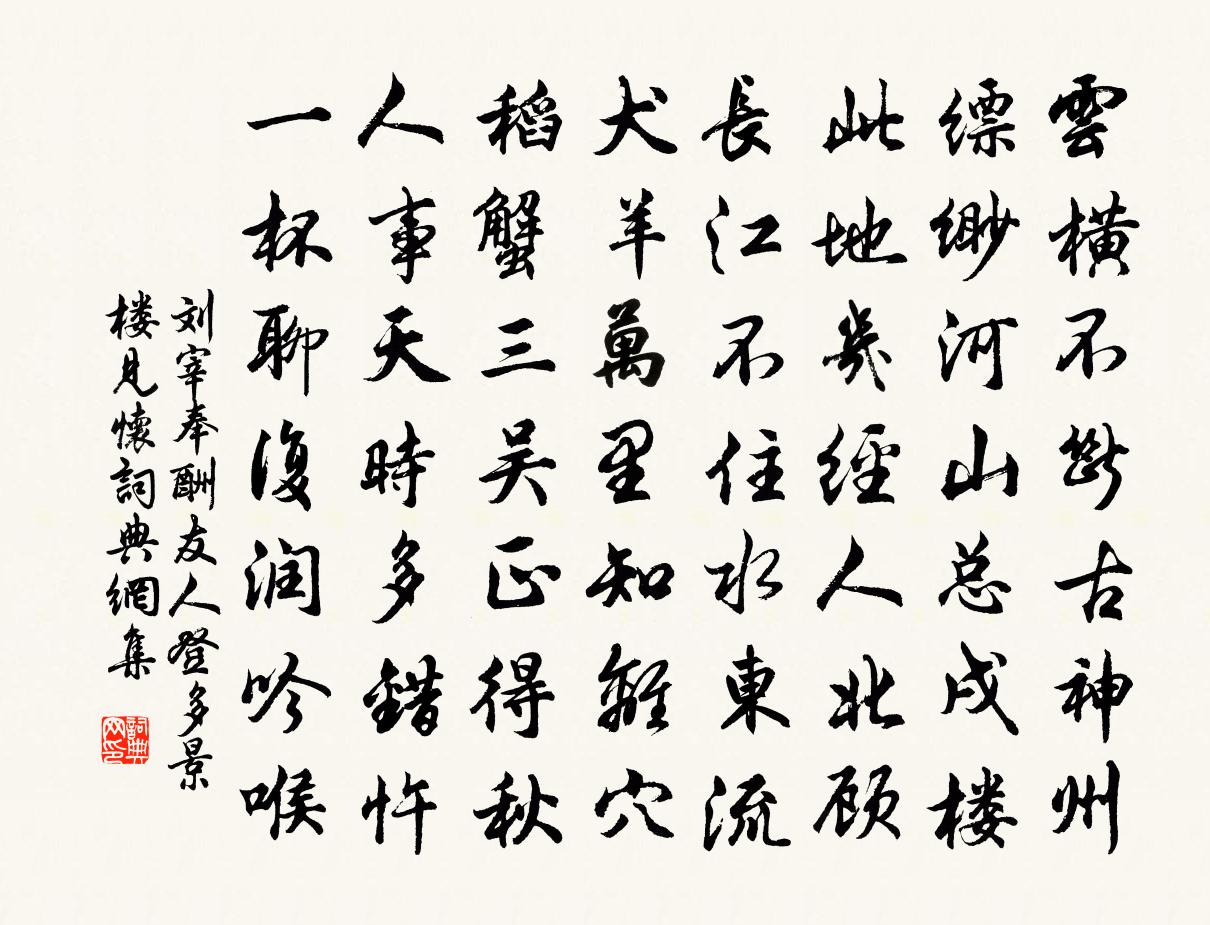 雲橫不斷古神州
縹緲河山总戍楼
此地幾經人北顾
長江不住水東流
犬羊萬里知離穴
稻蟹三吴正得秋
人事天時多錯忤
一杯聊復润吟喉
刘宰奉酬友人登多景
楼見懷詞典網集
詞典网印